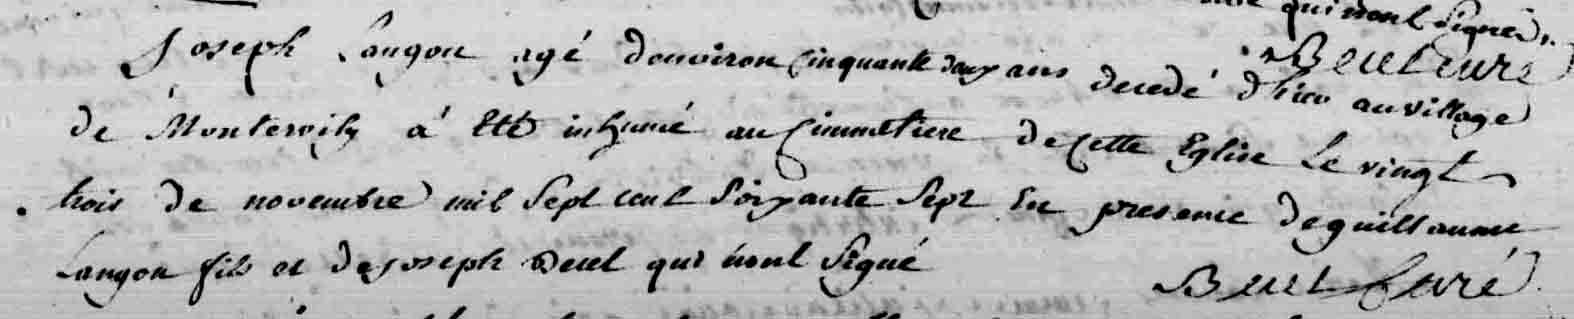 qui n'ont signés.
Beut curé
Joseph Langon agé d'environ cinquante deux ans decedé d'hier au village
de Montervily à été inhumé au cimmetiere de cette Eglise le vingt
trois de novembre mil sept cent soixante sept En presence de guillaume
Langon fils et de joseph qui n'ont signé
Beut Curé